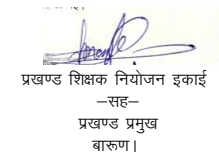 प्रखण्ड शिक्षक नियोजन इकाई
–सह–
प्रखण्ड प्रमुख
बारूण।